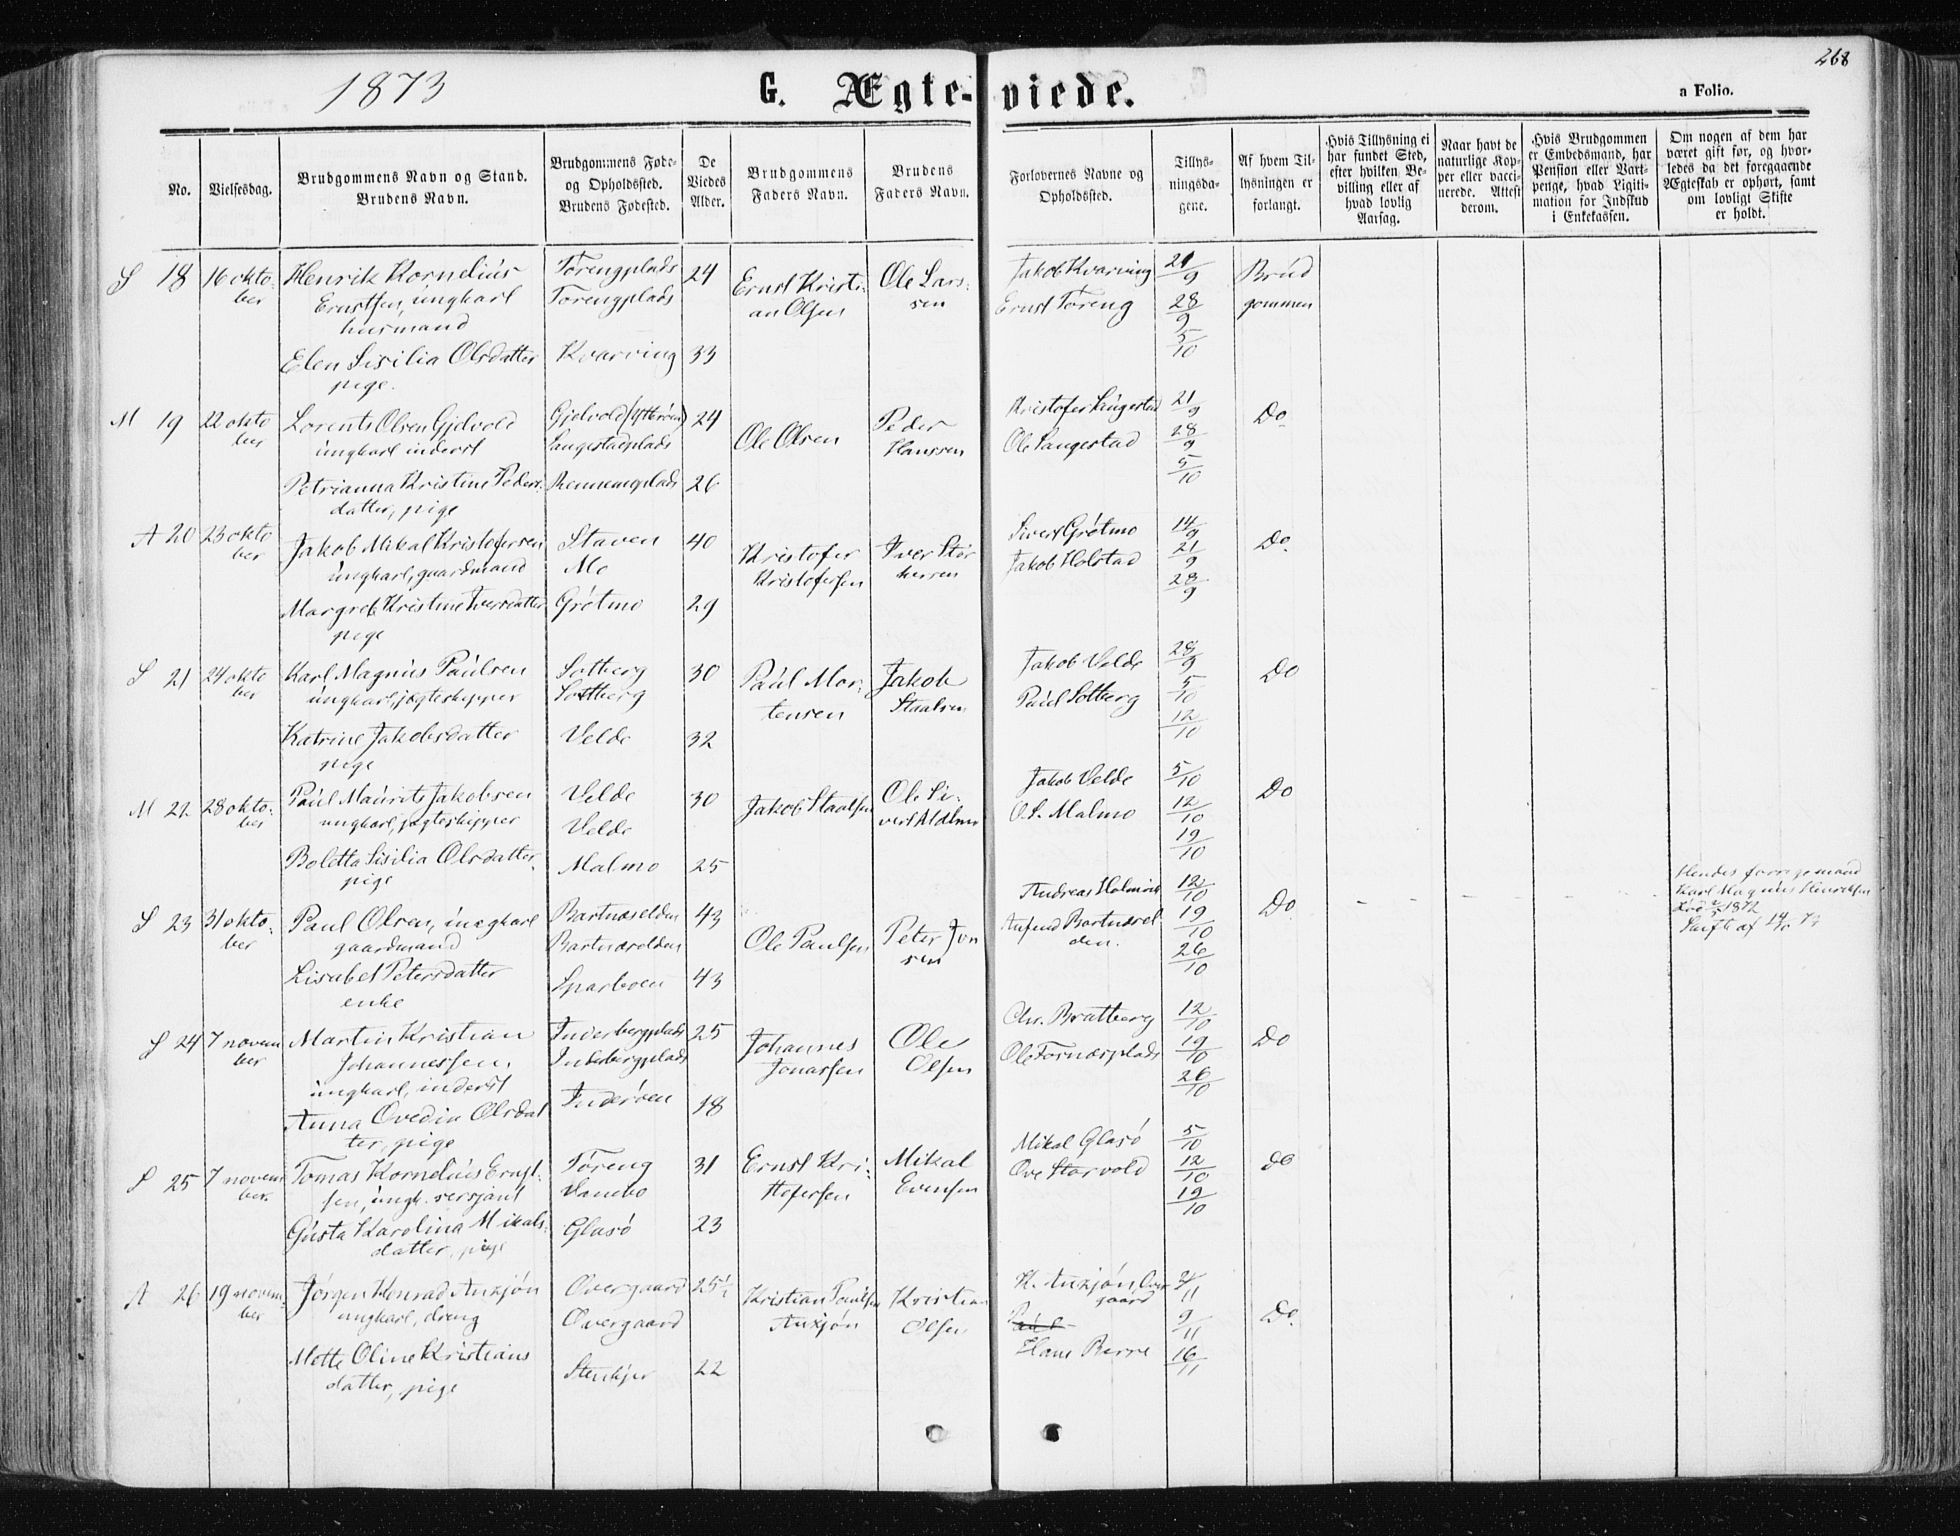 1873
G. Ægte-viede.
268
a Folio.
No.
Vielsesdag.
Brudgommens Navn og Stand.
Brudens Navn.
Brudgommens Føde-
og Opholdssted.
Brudens Fødested.
De
Viedes
Alder.
Brudgommens
Faders Navn.
Brudens
Faders Navn.
Forlovernes Navne og
Opholdssted.
Tillys-
ningsda-
gene.
Af hvem Til-
lysningen er
forlangt.
Hvis Tillysning ei
har fundet Sted,
efter hvilken Be-
villing eller af
hvad lovlig
Aarsag.
Naar havt de
naturlige Kop-
per eller vacci-
nerede. Attest
derom.
Hvis Brudgommen
er Embedsmand, har
Pension eller Vart-
penge, hvad Legiti-
mation for Indskud
i Enkekassen.
Om nogen af dem har
været gift før, og hvor-
ledes da det foregaaende
Ægteskab er ophørt, samt
om lovligt Skifte
er holdt.
S 18 16 okto-
ber
Henrik Kornelius
Ernstsen, ungkarl
husmand
Elen Sisilia Olsdatter
pige.
Tørengplads
Torengplads
Kvarving
24
33
Ernst Kristi-
an Olsen
Ole Lars-
sen
Jakob Kvarving
Ernst Tøreng
21/9
28/9
5/10
Brud
gommen
M 19 22 okto
ber
Lorents Olsen Gjelvold
ungkarl inderst
Petrianna Kristine Peders-
datter, pige
Gjelvold (Ytterøen)
Langestadplads
Rennemsplads
24
26
Ole Olsen
Peder
Hanssen
Kristofer Langestad
Ole Langestad
21/9
28/9
5/10
Do
A 20 23 okto
ber
Jakob Mikal Kristofersen
ungkarl, gaardmand
Margret Kristine Iversdatter
pige
Staven
Mo
Grøtmo
40
29
Kristofer
Kristofersen
Iver Stør
kersen
Sivert Grøtmo
Jakob Holstad
14/9
21/9
28/9
Do.
S 21 24 okto
ber
Karl Magnus Paulsen
ungkarl, jægteskipper
Katrine Jakobsdatter
pige
Solberg
Solberg
Velde
30
32
Paul Mor-
tensen
Jakob
Staalsen
Jakob Velde
Paul Solberg
28/9
5/10
12/10
Do
M 22 28 okto-
ber
Paul Maurits Jakobsen
ungkarl, jægteskipper
Boletta Sisilia Olsdatter,
pige
Velde
Velde
Malmo
30
25
Jakob Staalsen
Ole Si-
vert Malmo
Jakob Velde
O.S. Malmo
5/10
12/10
19/10
Do
S 23 31 okto-
ber
Paul Olsen, ungkarl
gaardmand
Lisabet Petersdatter
enke
Bartnæselden
Bartnæselden
Sparboen
43
43
Ole Paulsen
Peter Jon
sen
Andreas Holmvik
Anfind Bartnæsel-
den.
12/10
19/10
26/10
Do
Hendes forrige mand
Karl Magnus Henriksen
1872
Skifte af
S 24 7 novem
ber
Martin Kristian
Johannessen,
ungkarl, inderst
Anna Ovedia Olsdat
ter, pige
Inderbergplads
Inderbergplads
Inderøen
25
18
Johannes
Jonassen
Ole
Olsen
Chr. Bratberg
Ole Fornæsplads
12/10
19/10
26/10
Do
S 25 7 novem
ber.
Tomas Kornelius Ernst-
sen, ungk. sersjant
Gusta Karolina Mikals-
datter, pige
Tøreng
Vanebo
Glasø
31
23
Ernst Kri-
stofersen
Mikal
Evensen
Mikal Glasø
Ove Storvold
5/10
12/10
19/10
Do
A 26 19 novem-
ber
Jørgen Konrad Auxjøn
ungkarl, dreng
Mette Oline Kristians
datter, pige
Overgaard
Overgaard
Stenkjer
25½
22
Kristian Paulsen
Auxjøn
Kristian
Olsen
K. Auxjøn, Over
gaard
Paul
Hans Berre
2/11
9/11
16/11
Do.